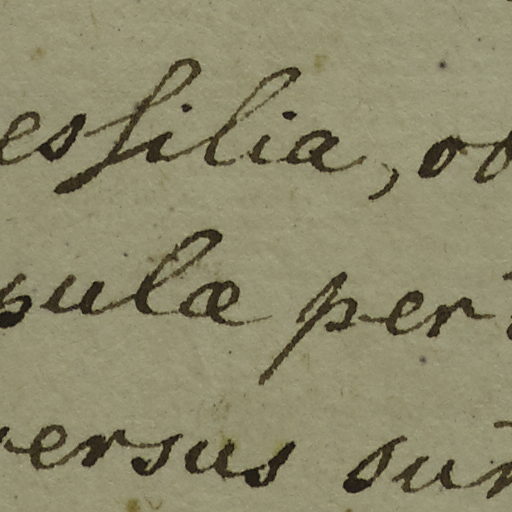 essilia, ob
pulæ per
versus sur